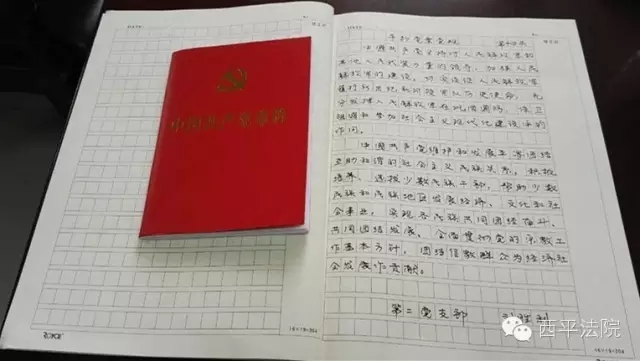 中国共产党章程
手抄党章党规 第十四天
中国共产党坚持对人民解放军和
其他人民武装力量的领导，加强人民
解放军的建设，切实保证人民解放军
履行新世纪新阶段军队历史使命，充
分发挥人民解放军在巩固国防、保卫
祖国和参加社会主义现代化建设中的
作用。
中国共产党维护和发展平等团结
互助和谐的社会主义民族关系，积极
培养、选拔少数民族干部，帮助少数
民族和民族地区发展经济、文化和社
会事业，实现各民族共同团结奋斗、
共同团结发展。全面贯彻党的宗教工
作基本方针，团结信教群众为经济社
会发展作贡献。
第二党支部
西平法院